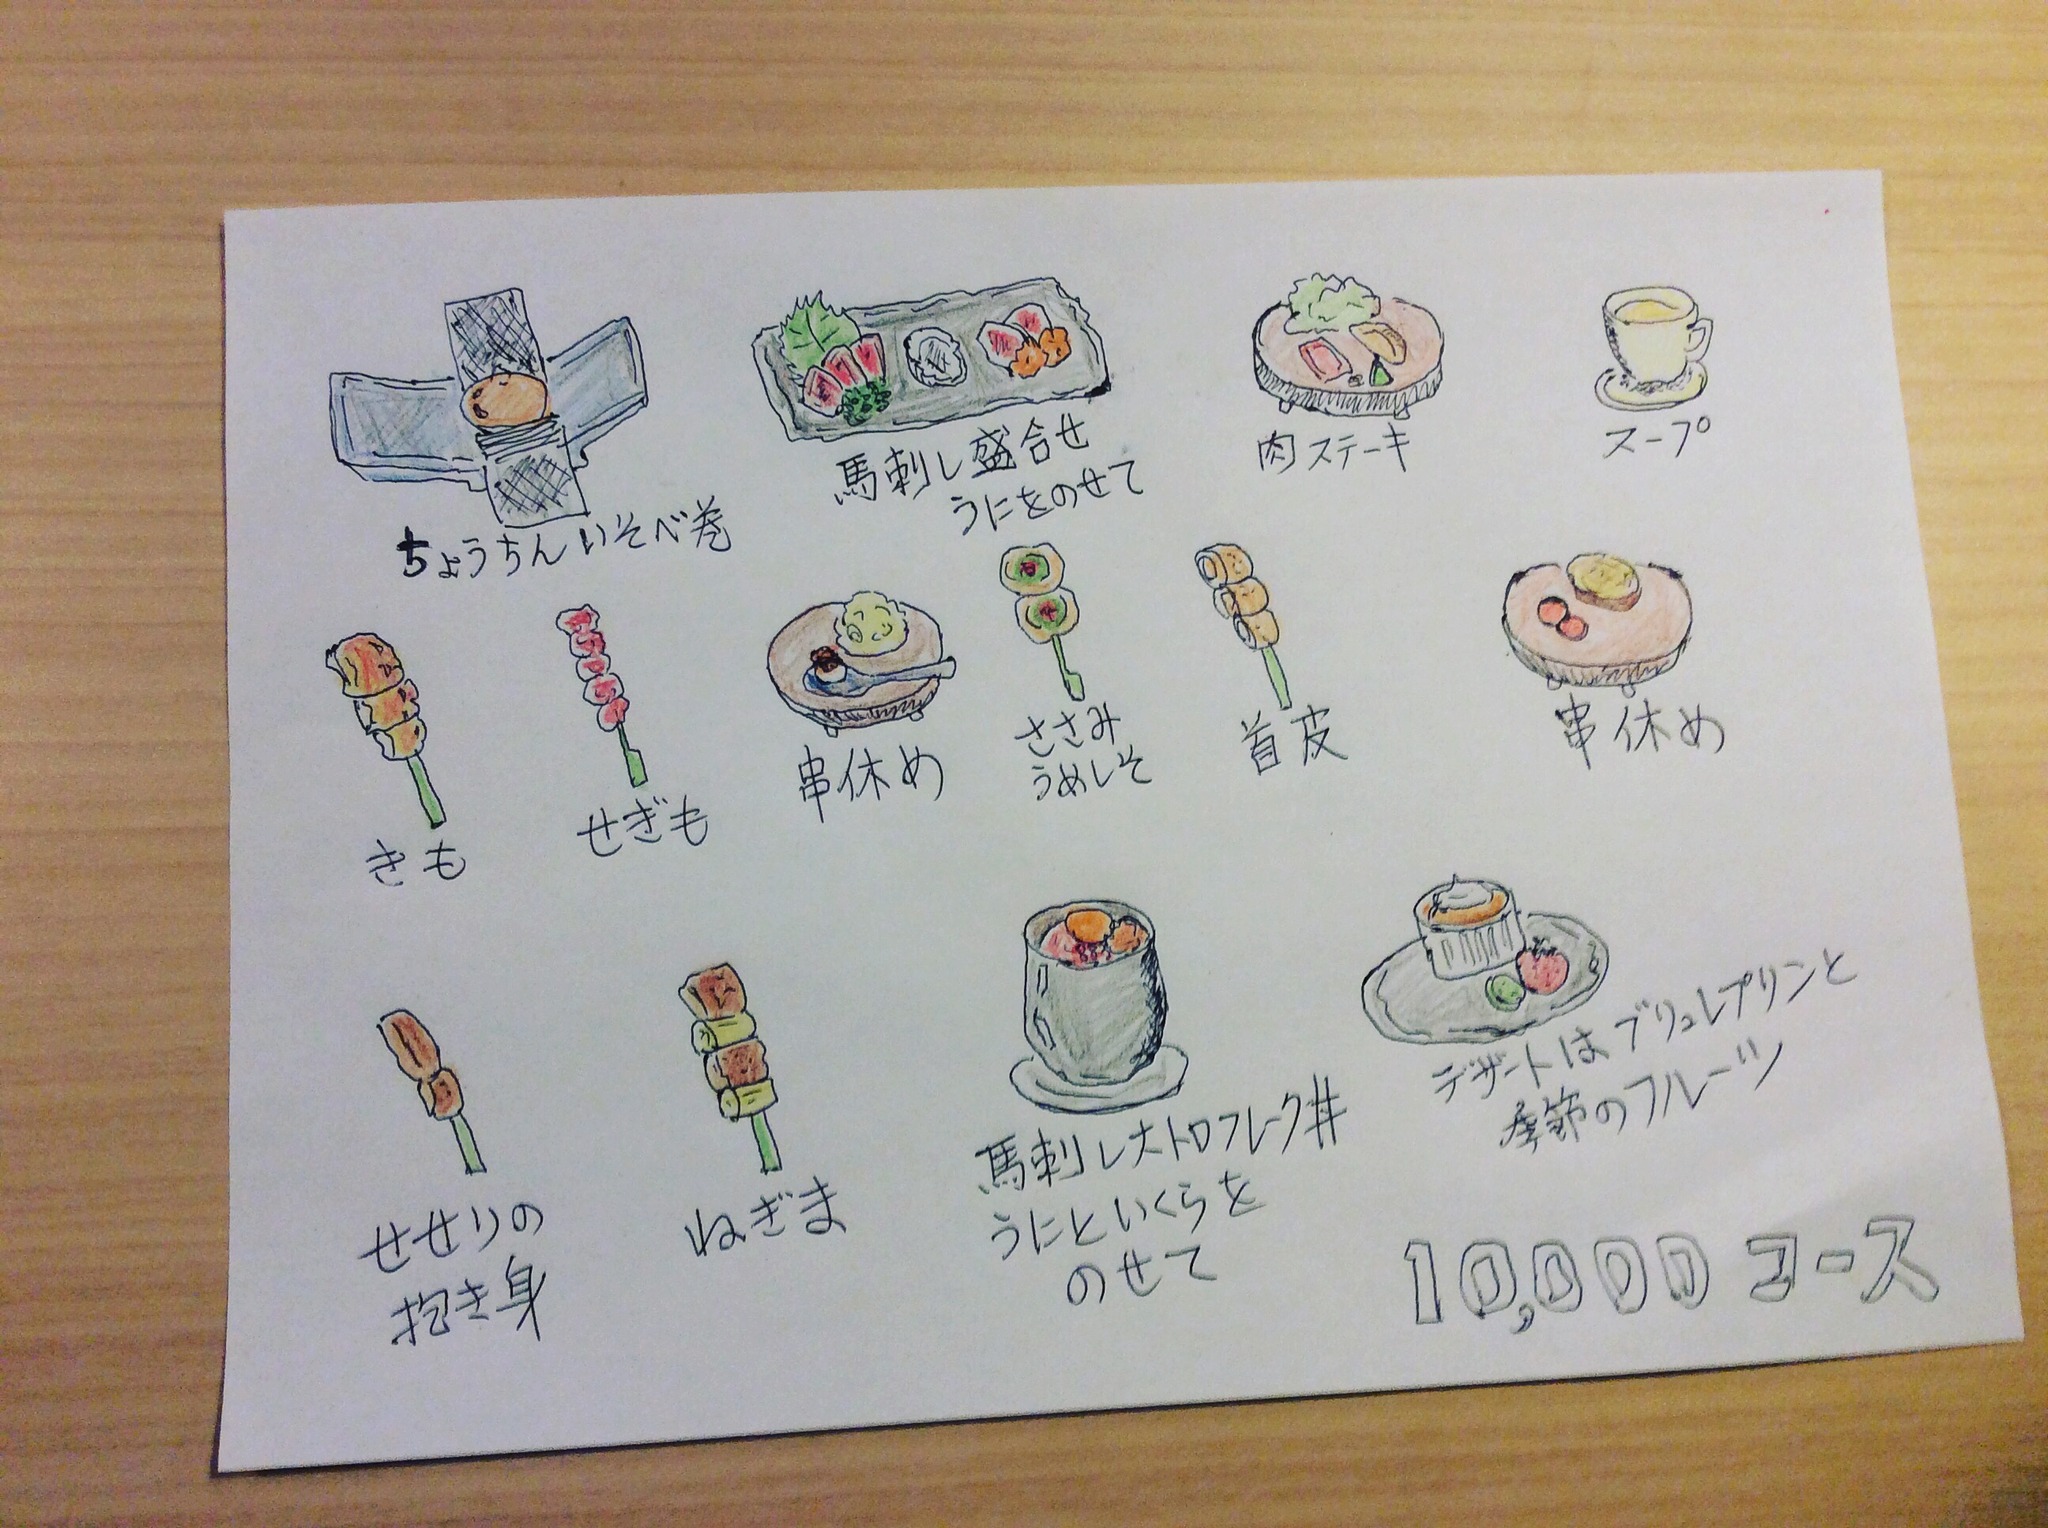 ちょうちんいそべ巻
馬刺し盛合せ
うにをのせて
肉ステーキ
スープ
きも
せぎも
串休め
ささみ
うめしそ
首皮
串休め
せせりの
抱き身
ねぎま
馬刺し大トロフレーク丼
うにといくらを
のせて
デザートはブリュレプリンと
季節のフルーツ
10,000コース